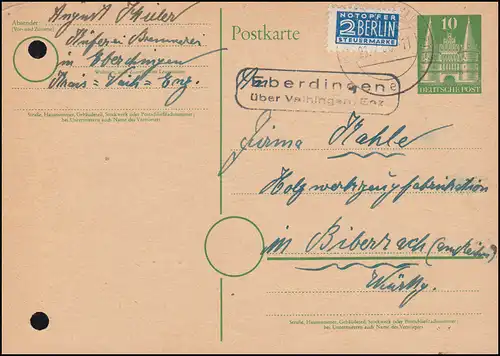 Absender
August
in Eberdingen
Kreis Vaih. Enz.
Straße, Hausnummer, Gebäudeteil, Stockwerk oder Postschließfachnummer;
bei Untermietern auch Name des Vermieters
Postkarte
NOTOPFER
2 BERLIN
STEUERMARKE
10
DEUTSCHE POST
Eberdingen
über Vaihingen/Enz
An
Firma Kahle
Holzwerkzeugfabrikation
in Biberach
Württ.
Straße, Hausnummer, Gebäudeteil, Stockwerk oder Postschließfachnummer;
bei Untermietern auch Name des Vermieters